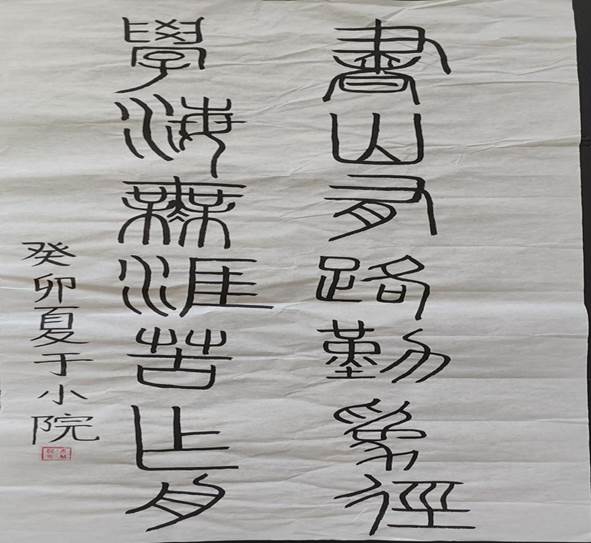 書山有路勤為徑
學海無涯苦乍舟
癸卯夏于小院